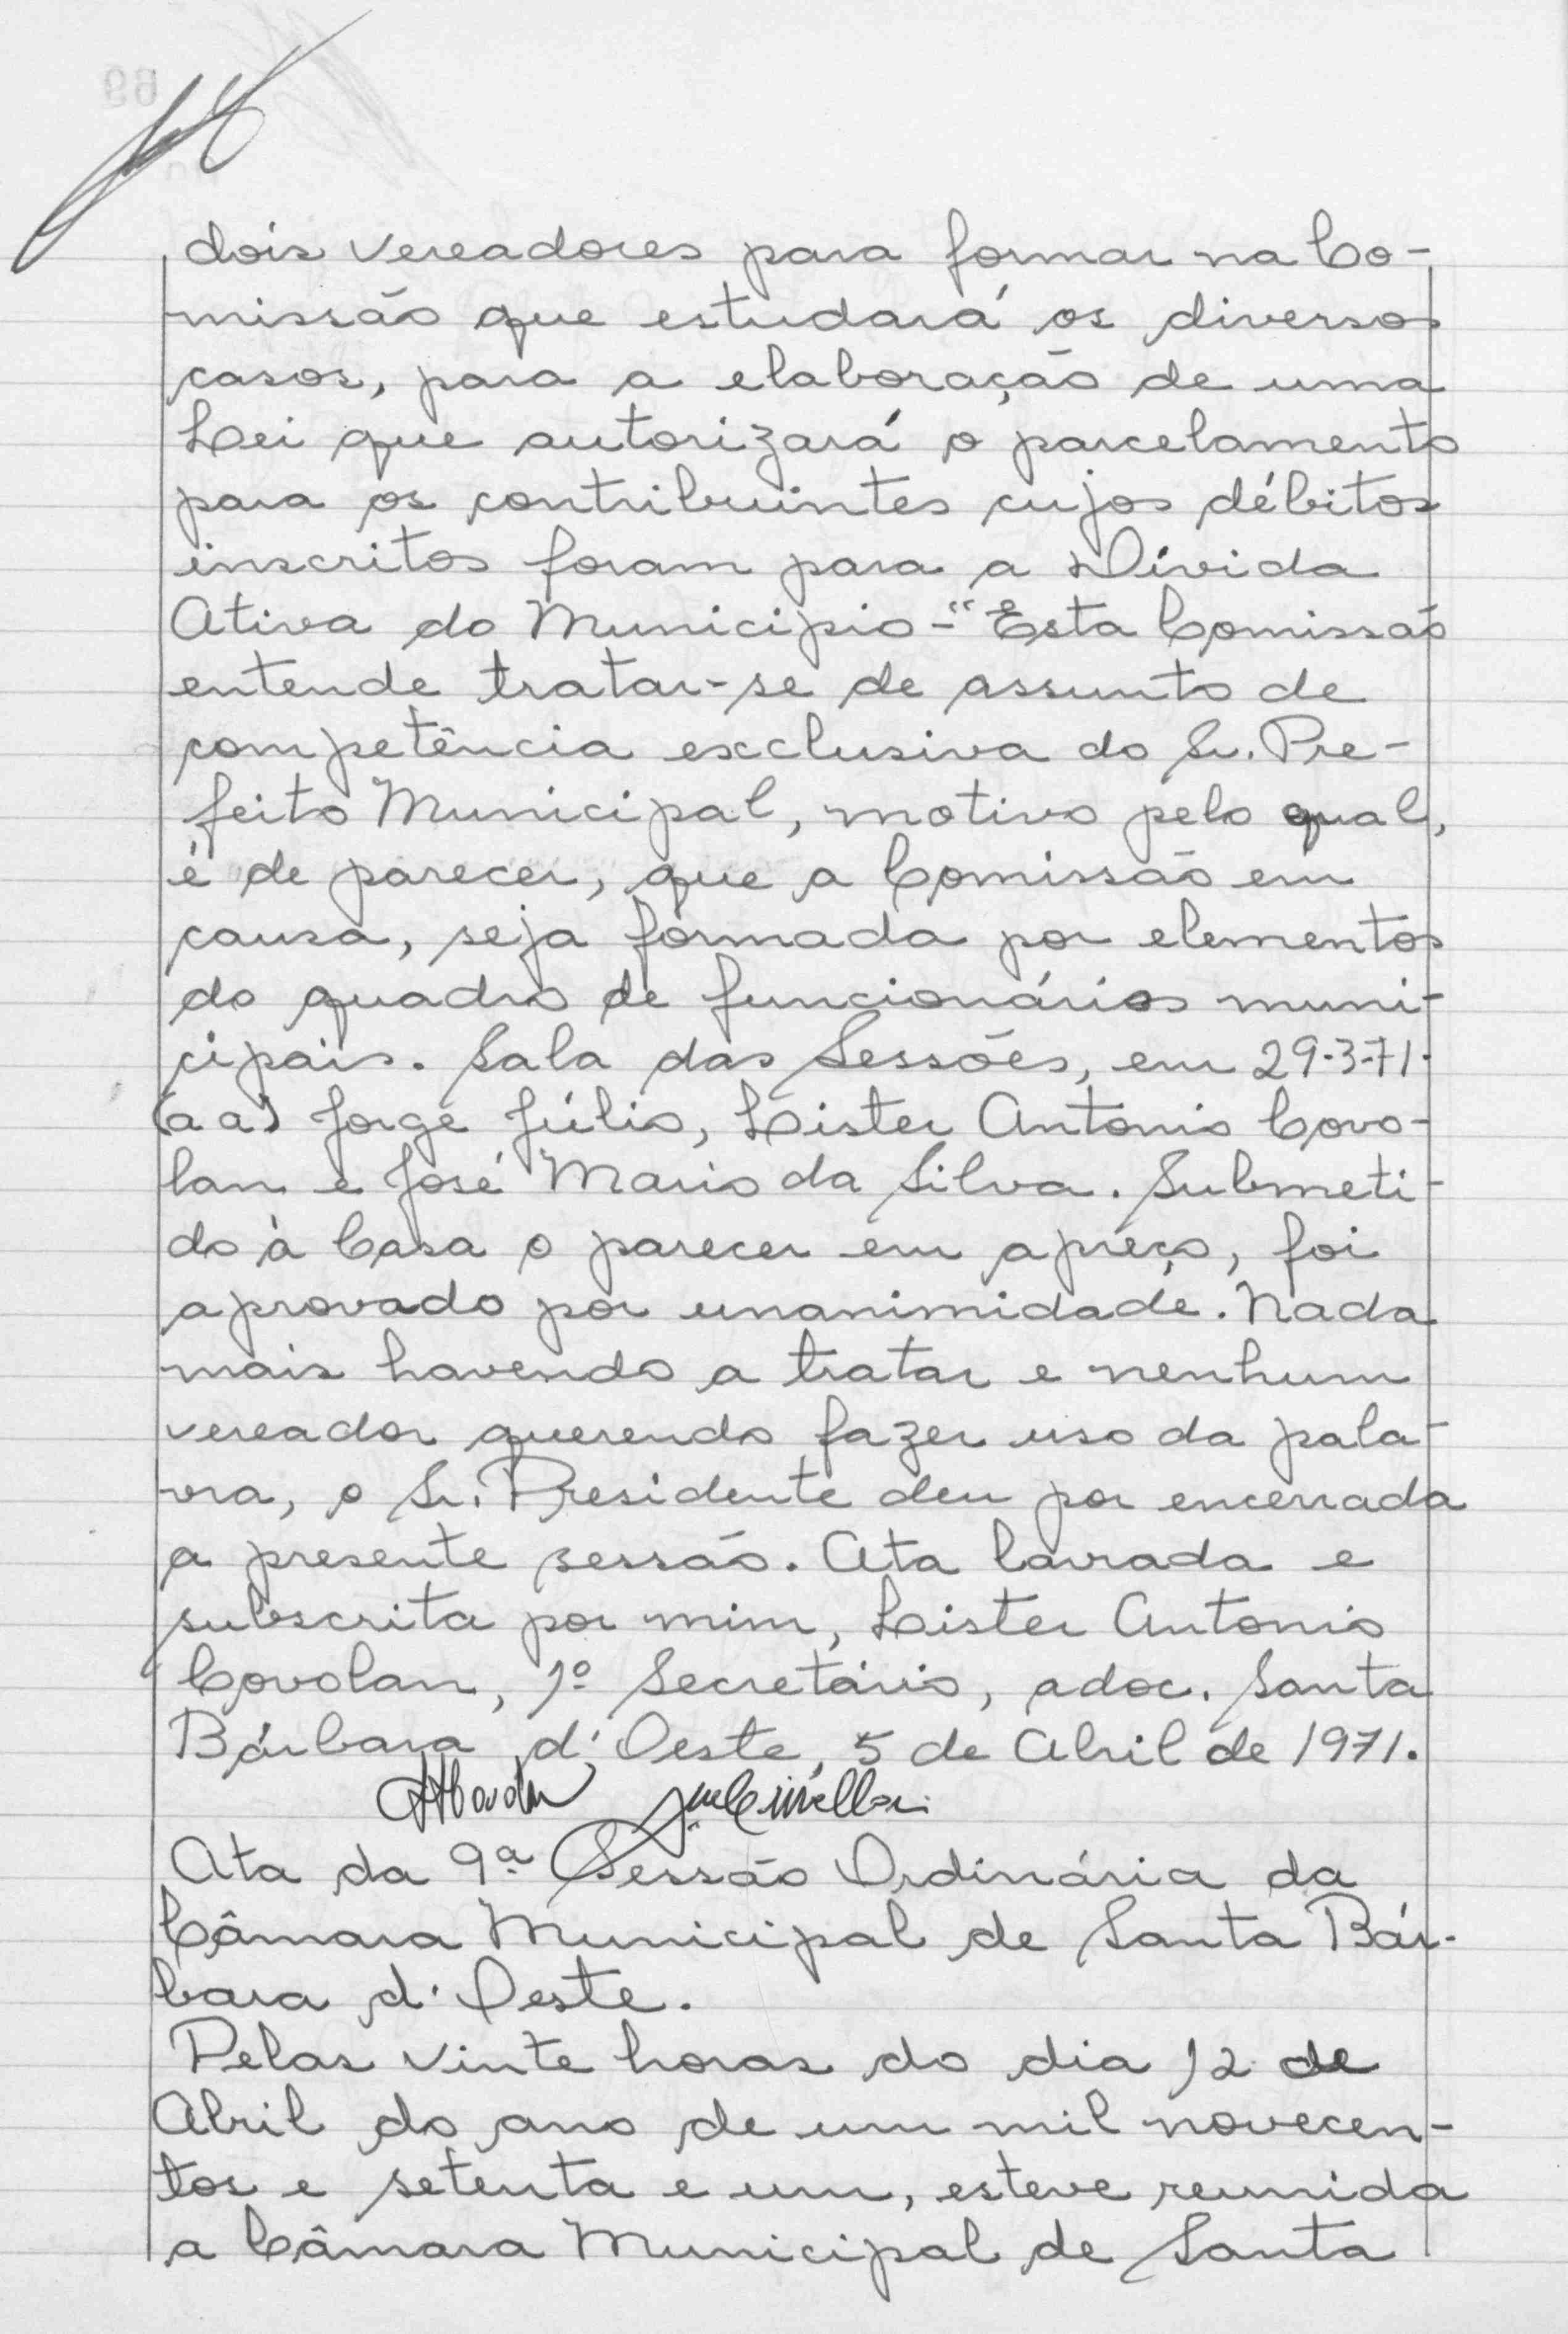 dois vereadores para formar na Co-
missão que estudará os diversos
casos, para a elaboração de uma
Lei que autorizará o parcelamento
para os contribuintes cujos débitos
inscritos foram para a Dívida
Ativa do Municipio - "Esta Comissão
entende tratar-se de assunto de
competência exclusiva do Sr. Pre-
feito Municipal, motivo pelo qual,
é de parecer, que a Comissão em
causa, seja formada por elementos
do quadro de funcionários muni-
cipais. Sala das Sessões, em 29-3-71.
(a a) Jorge Júlio, Lister Antonio Covo-
lan e José Mario da Silva. Submeti-
do à Casa o parecer em apreço, foi
aprovado por unanimidade. Nada
mais havendo a tratar e nenhum
vereador querendo fazer uso da pala-
vra, o Sr. Presidente deu por encerrada
a presente sessão. Ata lavrada e
subscrita por mim, Lister Antonio
Covolan, 1º Secretário, adoc. Santa
Bárbara d'Oeste, 5 de Abril de 1971.
Ata da 9ª Sessão Ordinária da
Câmara Municipal de Santa Bár-
bara d'Oeste.
Pelas vinte horas do dia 12 de
Abril do ano de um mil novecen-
tos e setenta e um, esteve reunida
a Câmara Municipal de Santa